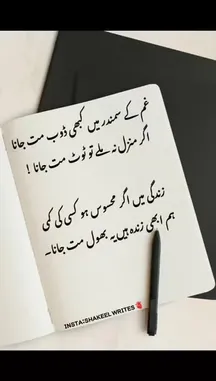 غم کے سمندر میں کبھی ڈوب مت جانا
اگر منزل نہ ملے تو ٹوٹ مت جانا !
زندگی میں اگر محسوس ہو کسی کی کمی
ہم ابھی زندہ ہیں یہ بھول مت جانا۔
INSTA:SHAKEEL WRITES